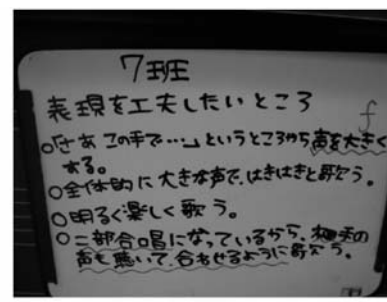 7班
表現を工夫したいところ
f
○「さあ この手で…」というところから声を大きく
する。
○全体的に大きな声で、はきはきと歌う。
○明るく楽しく歌う。
○二部合唱になっているから、相手の
声も聴いて、合わせるように歌う。